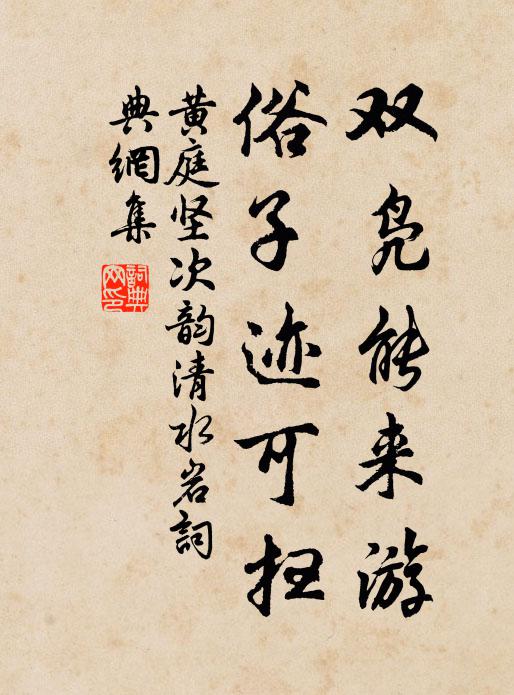 双凫能来游
俗子迹可扫
黄庭坚次韵清水岩詞
典網集
詞典网印